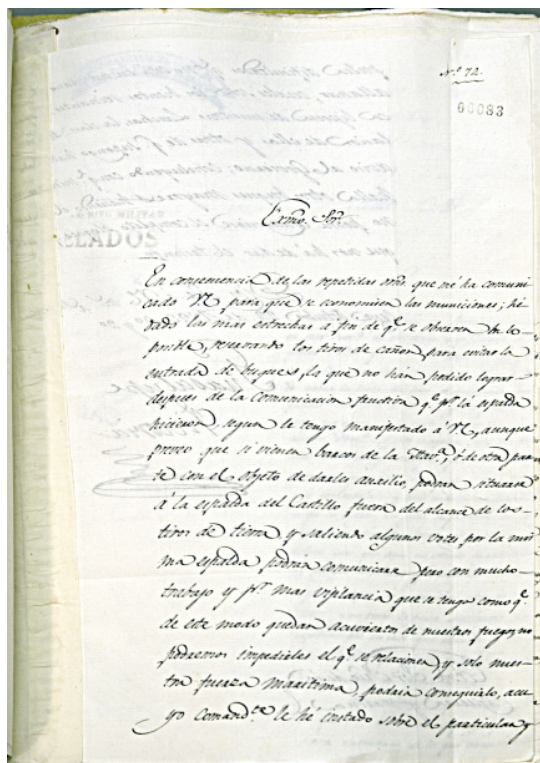 Nº 72.
00083
Exmo. Sor.
En consecuencia de las repetidas orns que me há comuni-
cado VE para que se economicen las municiones; hé
dado las mas estrechas á fin de q.e se observen en lo
posible, reservando los tiros de cañon, para evitar la
entrada de buques, la que no hán podido lograr
despues de la comunicacion q.e p.r la espalda
hicieron, segun le tengo manifestado á VE, aunque
preveo que si vienen barcos de la Hav.a, ó de otra par-
te con el objeto de darles auxilio, podrán situarse
á la espalda del Castillo fuera del alcance de los
tiros de tierra y saliendo algunos votes por la mis-
ma espalda podrán comunicarse pero con mucho
trabajo y p.r mas vigilancia que se tenga como q.e
de este modo quedan acuvierto de nuestros fuegos, no
podremos impedirles el q.e se relacionen, y solo nues-
tra fuerza maritima, podria conseguirlo, acu-
yo Comand.te le hé instado sobre el particular, y